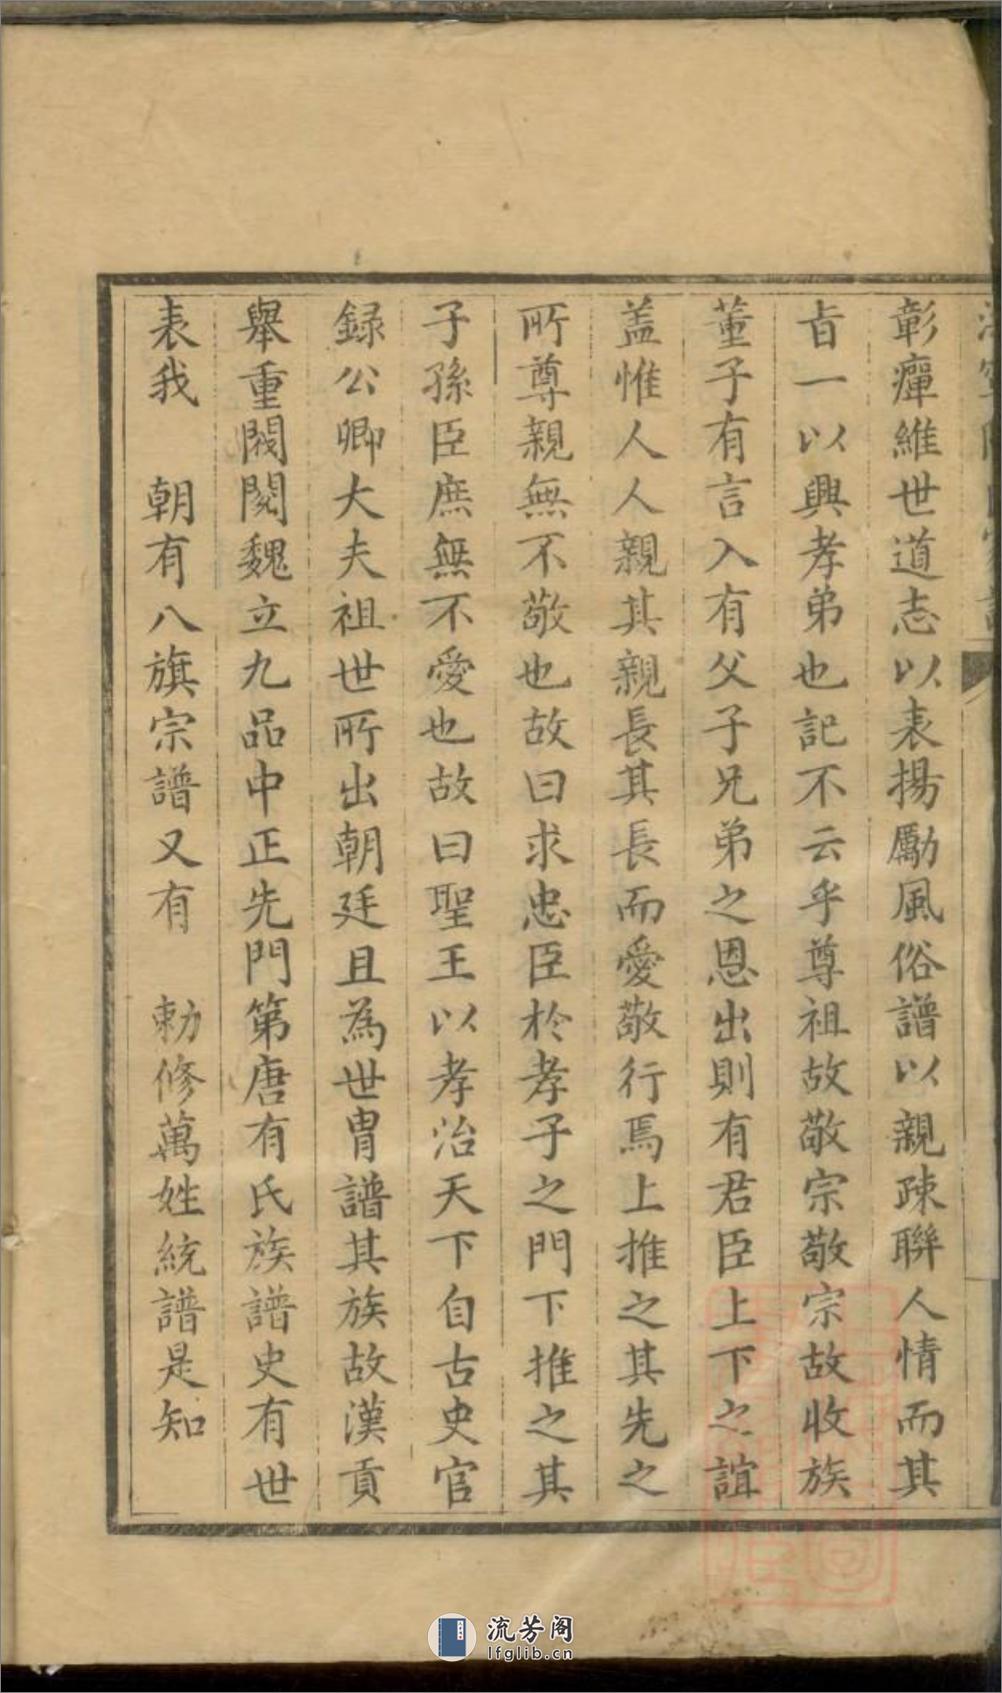 彰癉維世道志以表揚勵風俗譜以親疎聯人情而其
㫖一以興孝弟也記不云乎尊祖故敬宗敬宗故收族
董子有言入有父子兄弟之恩出則有君臣上下之誼
盖惟人人親其親長其長而愛敬行焉上推之其先之
所尊親無不敬也故曰求忠臣於孝子之門下推之其
子孫臣庶無不愛也故曰聖王以孝治天下自古史官
録公卿大夫祖世所出朝廷且為世胄譜其族故漢貢
舉重閥閱魏立九品中正先門第唐有氏族譜史有世
表我　朝有八旗宗譜又有　勅修萬姓統譜是知
流芳阁
lfglib.cn